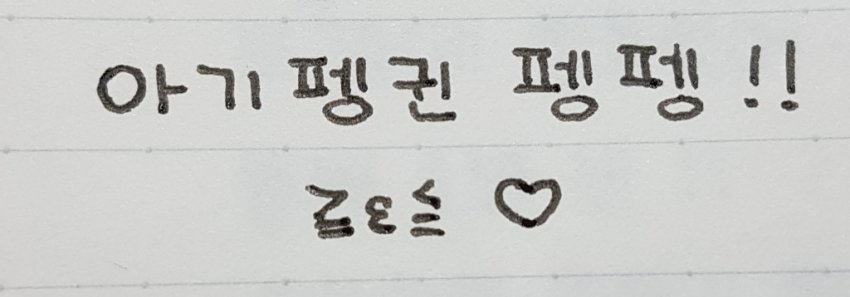 아기펭귄 펭펭!!
≧ε≦ ♡